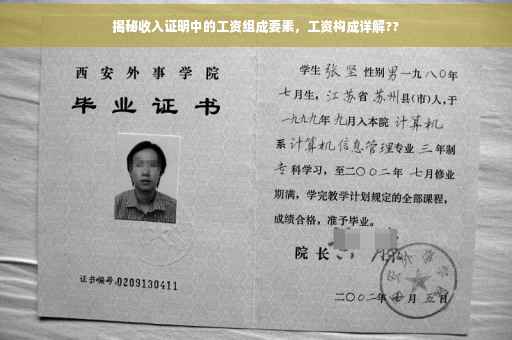 揭秘收入证明中的工资组成要素，工资构成详解??
西安外事学院
毕业证书
证书编号:0209130411
学生 张坚 性别男 一九八〇年
七月生，江苏省 苏州县(市)人，于
一九九九年 九月入本院 计算机
系 计算机信息管理专业 三 年制
专 科学习，至二〇〇二年 七月修业
期满，学完教学计划规定的全部课程，
成绩合格，准予毕业。
院 长
二〇〇二年 七 月 五 日